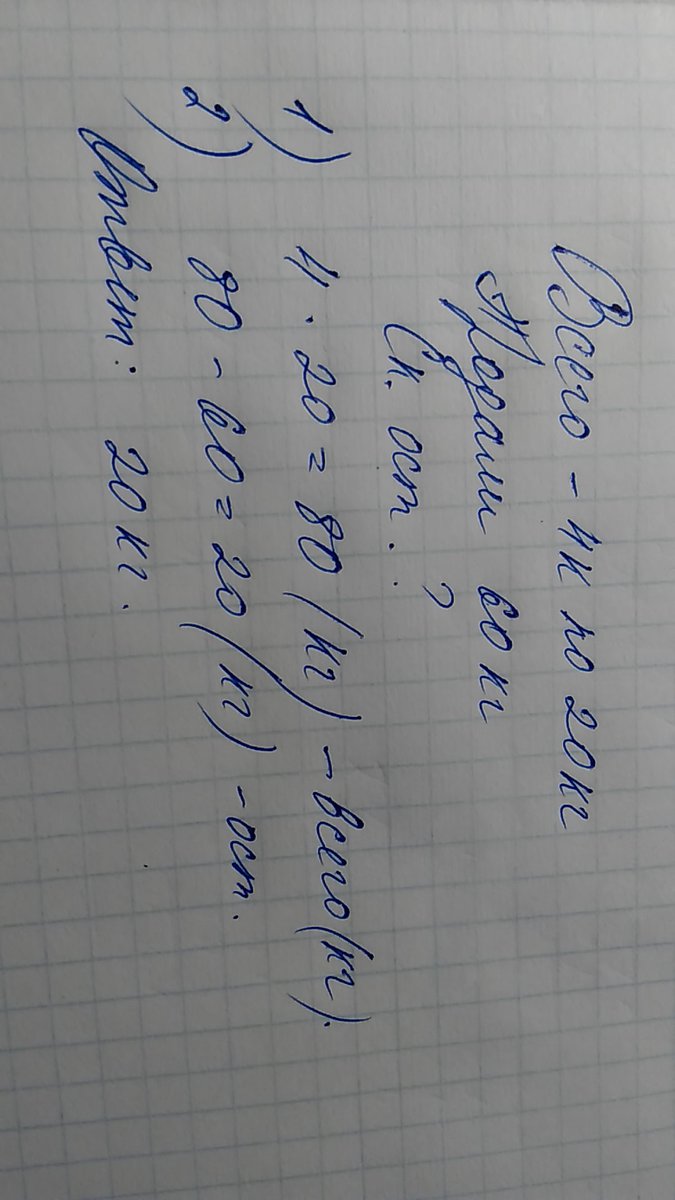 Всего - 4к по 20кг
Продали 60 кг
Ск. ост. ?
1) 4 · 20 = 80 (кг) - всего (кг).
2) 80 - 60 = 20 (кг) - ост.
Ответ: 20 кг.